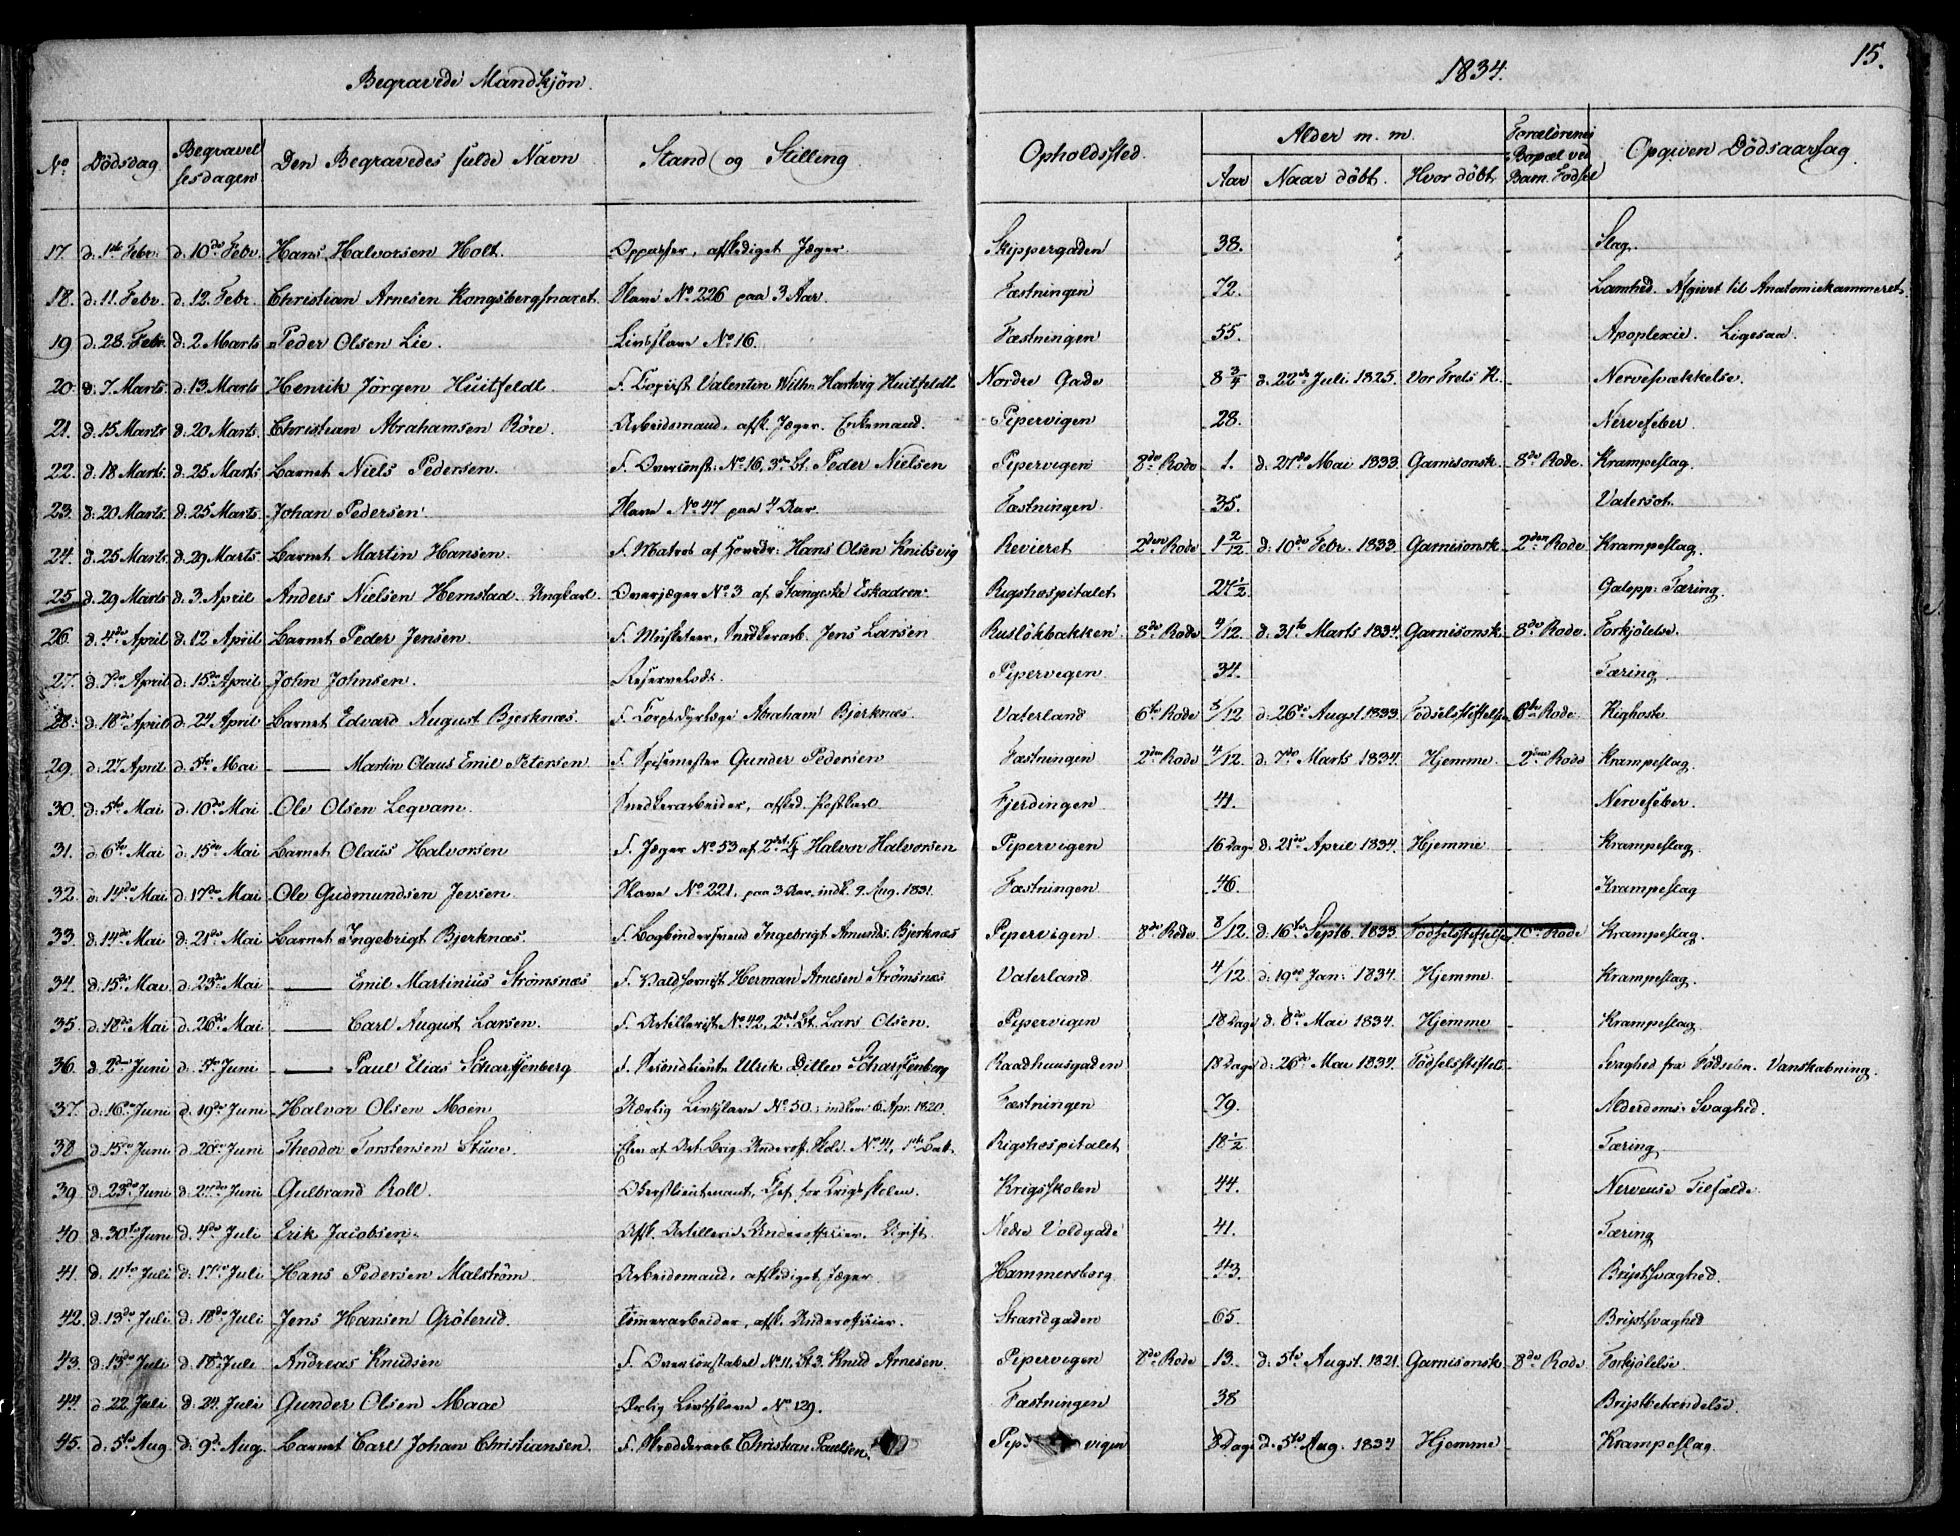 15.
Begravede Mandkjøn. 1834.
No Dödsdag Begravelsesdagen Den Begravedes fulde Navn Stand og Stilling Opholdssted. Alder m. m. Forældrenes Bopæl ved Barn. Födsel Opgiven Dödsaarsag.
Aar Naar döbt. Hvor döbt
17. d. 1ste Febr. d. 10de Febr. Hans Halvorsen Holt. Oppasser, afskediget Jæger. Skippergaden 38. Slag.
18. d. 11. Febr. d. 12. Febr. Christian Arnesen Kongsbergsnaret. Slave No 226 paa 3 Aar. Fæstningen 72. Lamhed. Afgivet til Anatomiekammeret.
19 d. 28. Febr. d. 2 Marts Peder Olsen Lie. Livsslave No 16. Fæstningen 55. Apoplexie. Ligesaa.
20. d. 7 Marts d. 13 Marts Henrik Jörgen Huitfeldt S. Copiist Valentin Wilh. Hartvig Huitfeldt Nordre Gade 8 3/4 d. 22de Juli 1825. Vor Frels K. Nervesvækkelse.
21. d. 15 Marts d. 20 Marts. Christian Abrahamsen Röre. Arbeidsmand, afsk. Jæger. Enkemand. Pipervigen 28. Nervefeber.
22. d. 18 Marts. d. 25 Marts Barnet Niels Pedersen. S. Overconst. No 16. 3die Bt. Peder Nielsen Pipervigen 8de Rode 1. d. 27de Mai 1833. Garnisonsk. 8de Rode. Krampeslag.
23. d. 20 Marts. d. 25 Marts. Johan Pedersen. Slave No 47 paa 4 Aar. Fæstningen 35. Vatersot.
24. d. 25 Marts d. 29 Marts. Barnet Martin Hansen. S. Matros af Hovedv. Hans Olsen Knitsvig Revieret 2den Rode 1 2/12 d. 10de Febr. 1833. Garnisonsk. 2den Rode Krampeslag.
25 d. 29 Marts d. 3. April Anders Nielsen Hemstad. Ungkarl. Overjæger No 3 af Stangeske Eskadron. Rigshospitalet 27 1/2 Galopp: Tæring.
26. d. 4de April d. 12 April Barnet Peder Jensen. S. Musketeer, Snedkerarb. Jens Larsen Ruslökbakken. 8de Rode 4/12 d. 31te Marts 1834. Garnisonsk. 8de Rode. Forkjölelse.
27. d. 7de April d. 15de April John Johnsen. Reservelods. Pipervigen. 34. Tæring
28. d. 18de April d. 24 April Barnet Edvard August Bjerknæs. S. Corpsdyrlæge Abraham Bjerknæs. Vaterland 6te Rode 3/12 d. 26de Augst. 1833. Födselsstiftelsen 6te Rode. Kighoste.
29. d. 27 April d. 5te Mai —— Martin Olaus Emil Petersen S. Spisemester Gunder Pedersen Fæstningen 2den Rode 4/12 d. 7de Marts 1834. Hjemme 2den Rode Krampeslag.
30. d. 5te Mai d. 10de Mai Ole Olsen Leqvam. Snedkerarbeider, afsked. Fjerdingen 41. Nervefeber.
31. d. 6te Mai d. 15de Mai Barnet Olaus Halvorsen S. Jæger No 53 af 2det Halvor Halvorsen Pipervigen 16 Dage d. 21de April 1834. Hjemme Krampeslag.
32. d. 14de Mai d. 17de Mai Ole Gudmundsen Jevsen. Slave No 221, paa 3 Aar. indk. 9. Aug. 1831. Fæstningen 46. Krampeslag
33. d. 14de Mai d. 21de Mai Barnet Ingebrigt Bjerknæs. S. Bogbindersvend Ingebrigt Amunds. Bjerknæs Pipervigen 8de Rode 8/12. d. 16te Septb. 1833. Födselsstiftelsen 10de Rode Krampeslag.
34. d. 15de Mai d. 23de Mai —— Emil Martinius Strömsnæs S. Valdhornist Herman Arnesen Strömsnæs Vaterland 4/12 d. 19de Jan. 1834. Hjemme Krampeslag.
35. d. 18de Mai d. 26de Mai —— Carl August Larsen. S. Artillerist No 42, 2det Bt. Lars Olsen. Pipervigen 18 Dage d. 8de Mai 1834. Hjemme Krampeslag.
36. d. 2den Juni d. 5te Juni —— Paul Elias Scharffenberg S. Secondlieutn. Ulrik Ditlev Scharffenberg Raadhuusgaden 18 Dage d. 26de Mai 1834. Födselsstiftels. Svaghed fra Födselen. Vanskabning.
37. d. 16de Juni d. 19de Juni Halvor Olsen Moen Uærlig Livsslave No 50, indkom 6. Apr. 1820. Fæstningen 79. Alderdoms Svaghed.
38 d. 15de Juni d. 20de Juni Theodor Torstensen Stuve. Elev af Art. Brig. Underoff. Skol. No 41, 1ste Bat. Rigshospitalet 18 1/2 Tæring
39 d. 23de Juni d. 27de Juni Gulbrand Roll. Oberstlieutenant, Chef for Krigsskolen. Krigsskolen 44. Nerveuse Tilfælde
40 d. 30te Juni d. 4de Juli Erik Jacobsen. Afsk. Artillerie Underofficier. Ugift. Nedre Voldgade 41. Tæring
41. d. 11te Juli d. 17de Juli Hans Pedersen Malström. Arbeidsmand, afskediget Jæger. Hammersborg 43. Brystsvaghed.
42. d. 13de Juli d. 18de Juli Jens Hansen Gröterud. Tömmerarbeider, afsk. Underofficier. Strandgaden 65. Brystsvaghed
43. d. 13de Juli d. 18de Juli Andreas Knudsen S. Overconstabel No 11, Bt. 3. Knud Arnesen. Pipervigen 8de Rode 13. d. 5te Augst. 1821. Garnisonsk. 8de Rode Forkjölelse
44. d. 22 Juli d. 24. Juli Gunder Olsen Maae Ærlig Livsslave No 129. Fæstningen 38 Brystbetændelse.
45. d. 5te Aug. d. 9de Aug. Barnet Carl Johan Christiansen. S. Skrædderarb. Christian Paulsen. Pipervigen 8 Dage d. 5te Aug. 1834 Hjemme Krampeslag.